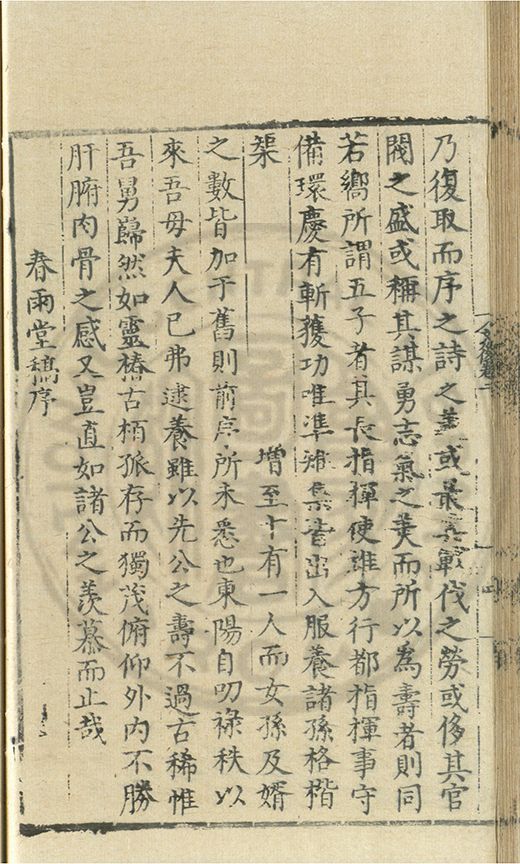 乃復取而序之詩之業或最其戰伐之勞或侈其官
閥之盛或稱其謀勇志氣之美而所以為壽者則同
若嚮所謂五子者其長指揮使雄方行都指揮事守
備環慶有斬獲功唯準雉集皆出入服養諸孫格楷
榘 增至十有一人而女孫及婿
之數皆加于舊則前序所未悉也東陽自叨祿秩以
來吾母夫人已弗逮養雖以先公之壽不過古稀惟
吾舅巋然如靈椿古栢孤存而獨茂俯仰外内不勝
肝腑肉骨之感又豈直如諸公之羨慕而止哉
春雨堂稿序